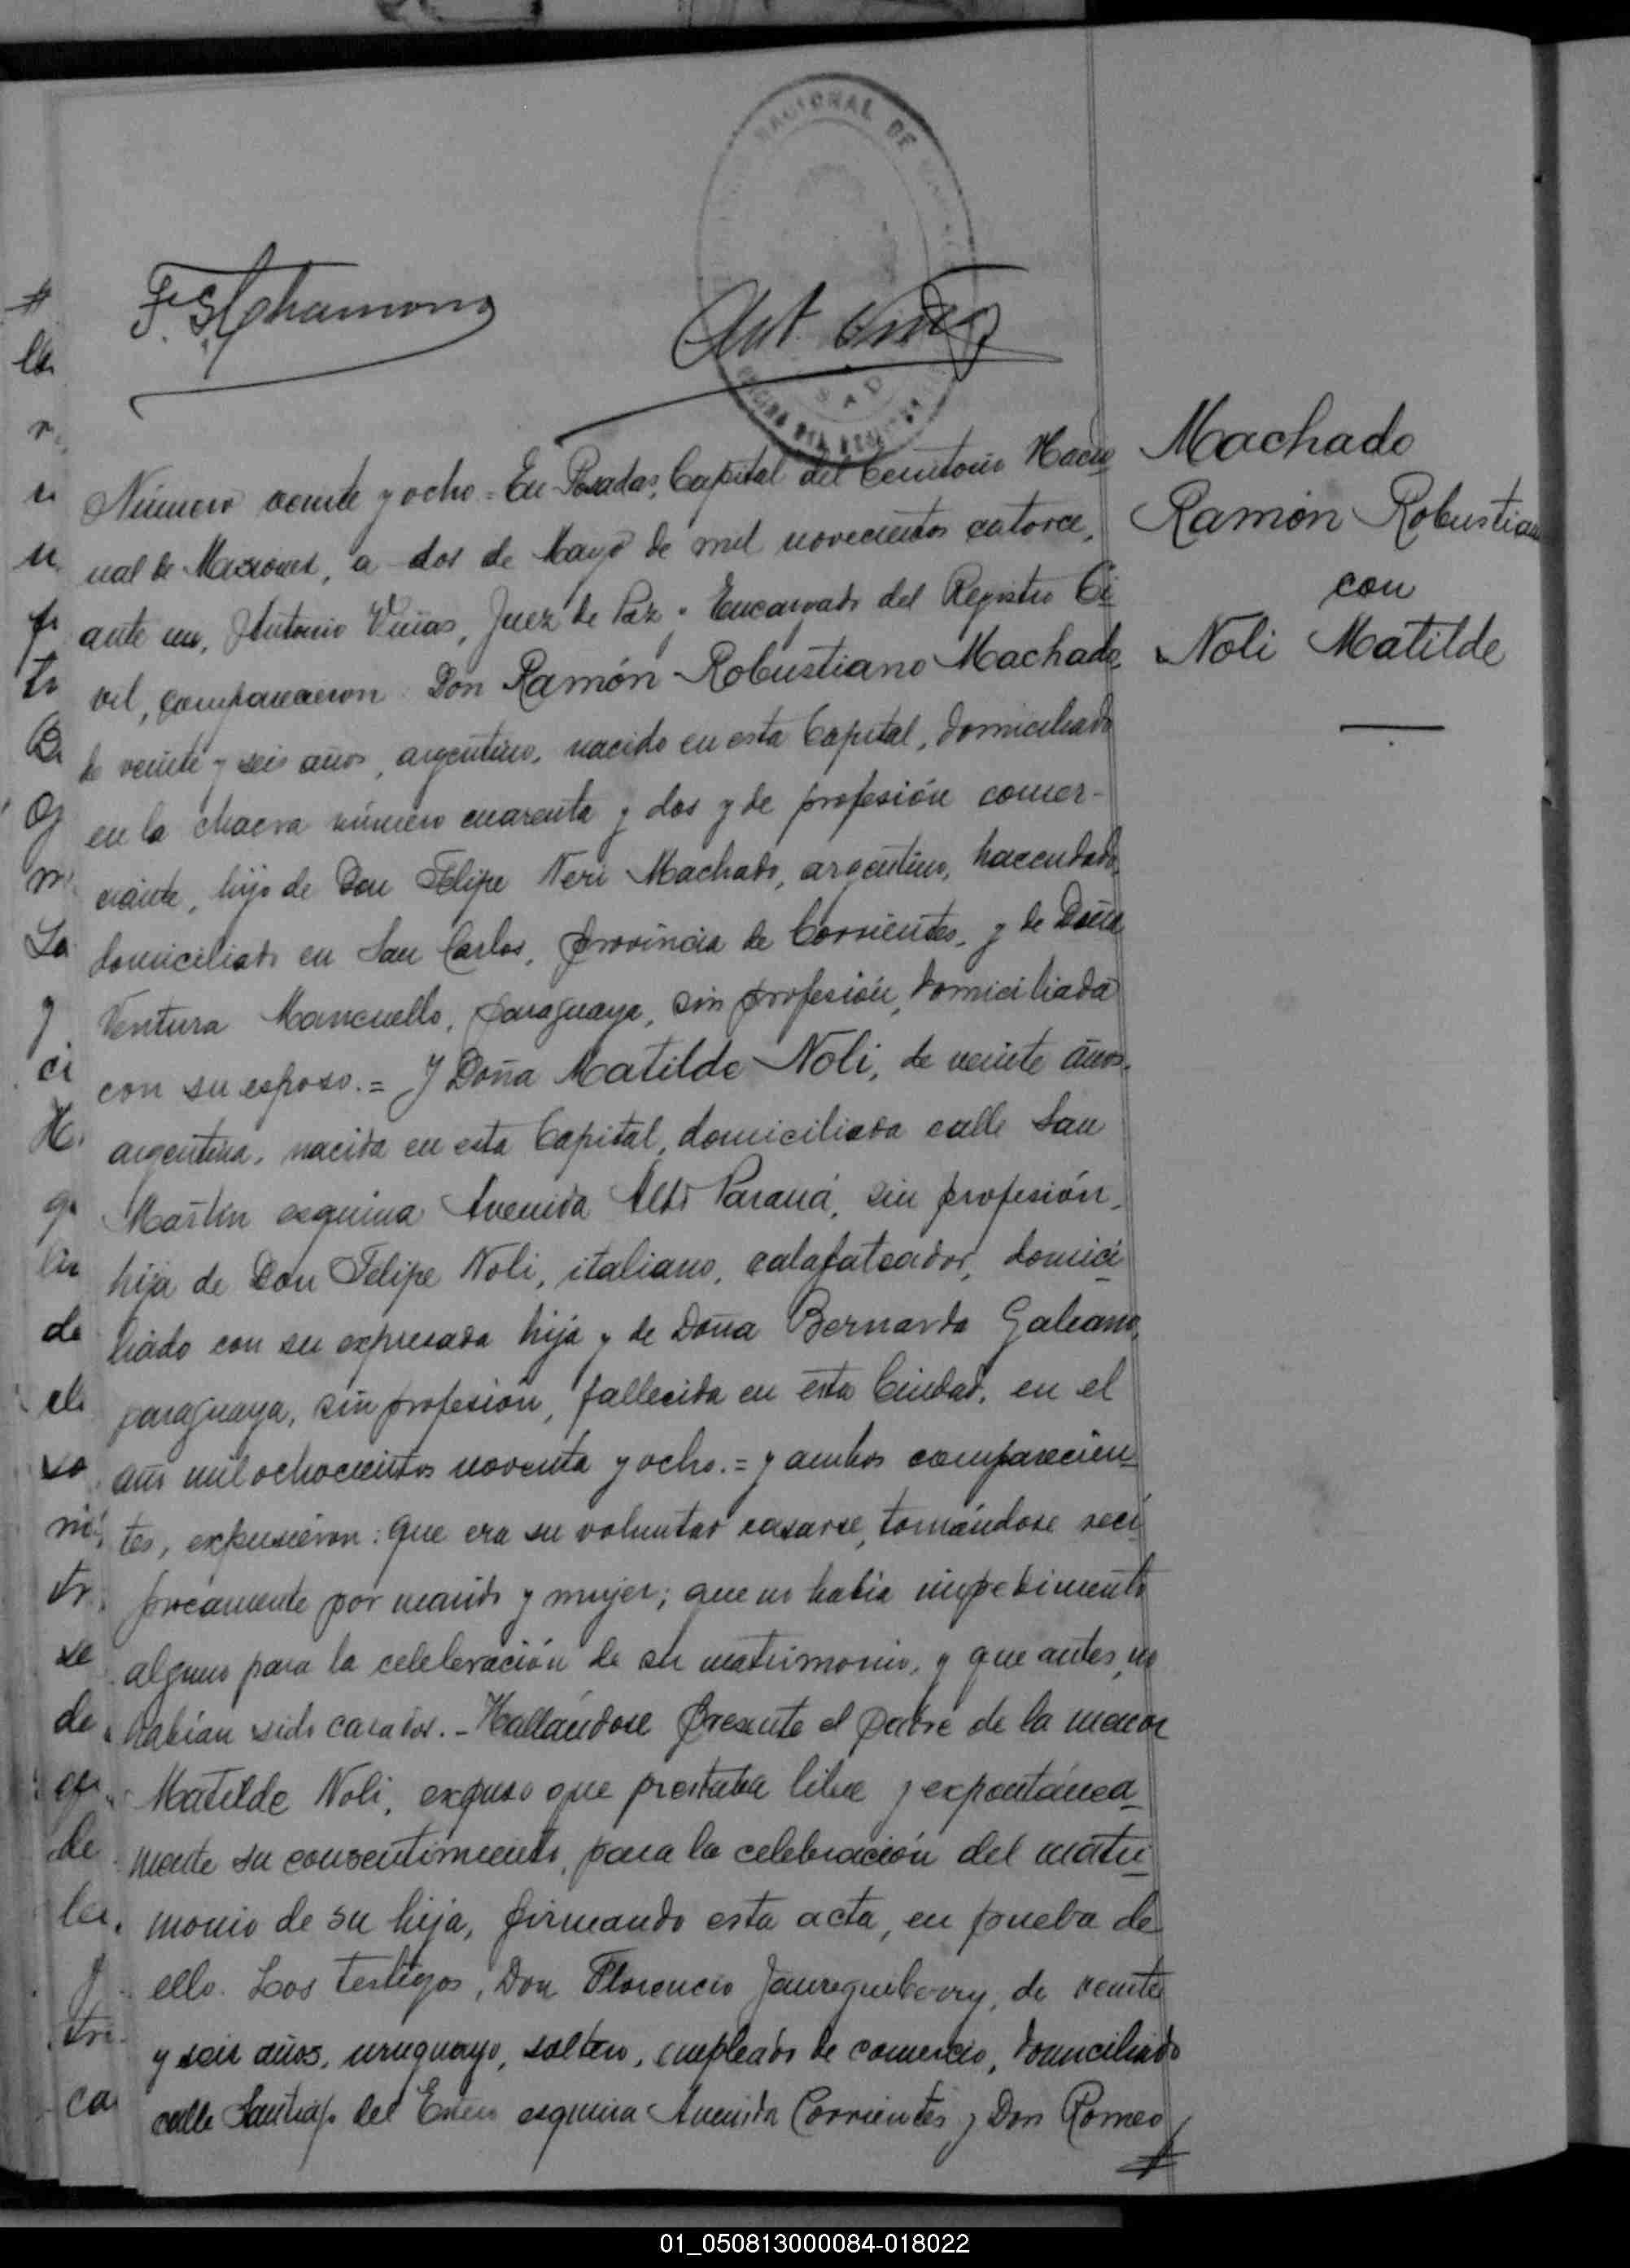 NACIONAL DE
SAD
Número veinte y ocho = En Posadas, Capital del Territorio Nacio
nal de Misiones, a dos de Mayo de mil novecientos catorce,
ante mi, Antonio Viñas, Juez de Paz y Encargado del Registro Ci
vil, comparecieron Don Ramón Robustiano Machado,
de veinte y seis años, argentino, nacido en esta Capital, domiciliado
en la chacra número cuarenta y dos y de profesión comer-
ciante, hijo de Don Felipe Neri Machado, argentino, hacendado,
domiciliado en San Carlos, provincia de Corrientes, y de Doña
Ventura Mancuello, paraguaya, sin profesión, domiciliada
con su esposo. = Y Doña Matilde Noli, de veinte años,
argentina, nacida en esta Capital, domiciliada calle San
Martín esquina Avenida Alto Paraná, sin profesión,
hija de Don Felipe Noli, italiano, calafateador, domici
liado con su expresada hija y de Doña Bernarda Galeano,
paraguaya, sin profesión, fallecida en esta Ciudad, en el
año mil ochocientos noventa y ocho. = y ambos comparecien
tes, expusieron: que era su voluntad casarse, tomándose reci
procamente por marido y mujer; que no había impedimento
alguno para la celebración de su matrimonio, y que antes no
habían sido casados. - Hallándose presente el padre de la menor
Matilde Noli, expuso que prestaba libre y expontánea
mente su consentimiento, para la celebración del matri
monio de su hija, firmando esta acta, en prueba de
ello. Los testigos, Don Florencio Jaureguiberry, de veinte
y seis años, uruguayo, soltero, empleado de comercio, domiciliado
calle Santiago del Estero esquina Avenida Corrientes y Don Romeo
Machado
Ramón Robustian
con
Noli Matilde
01_050813000084-018022